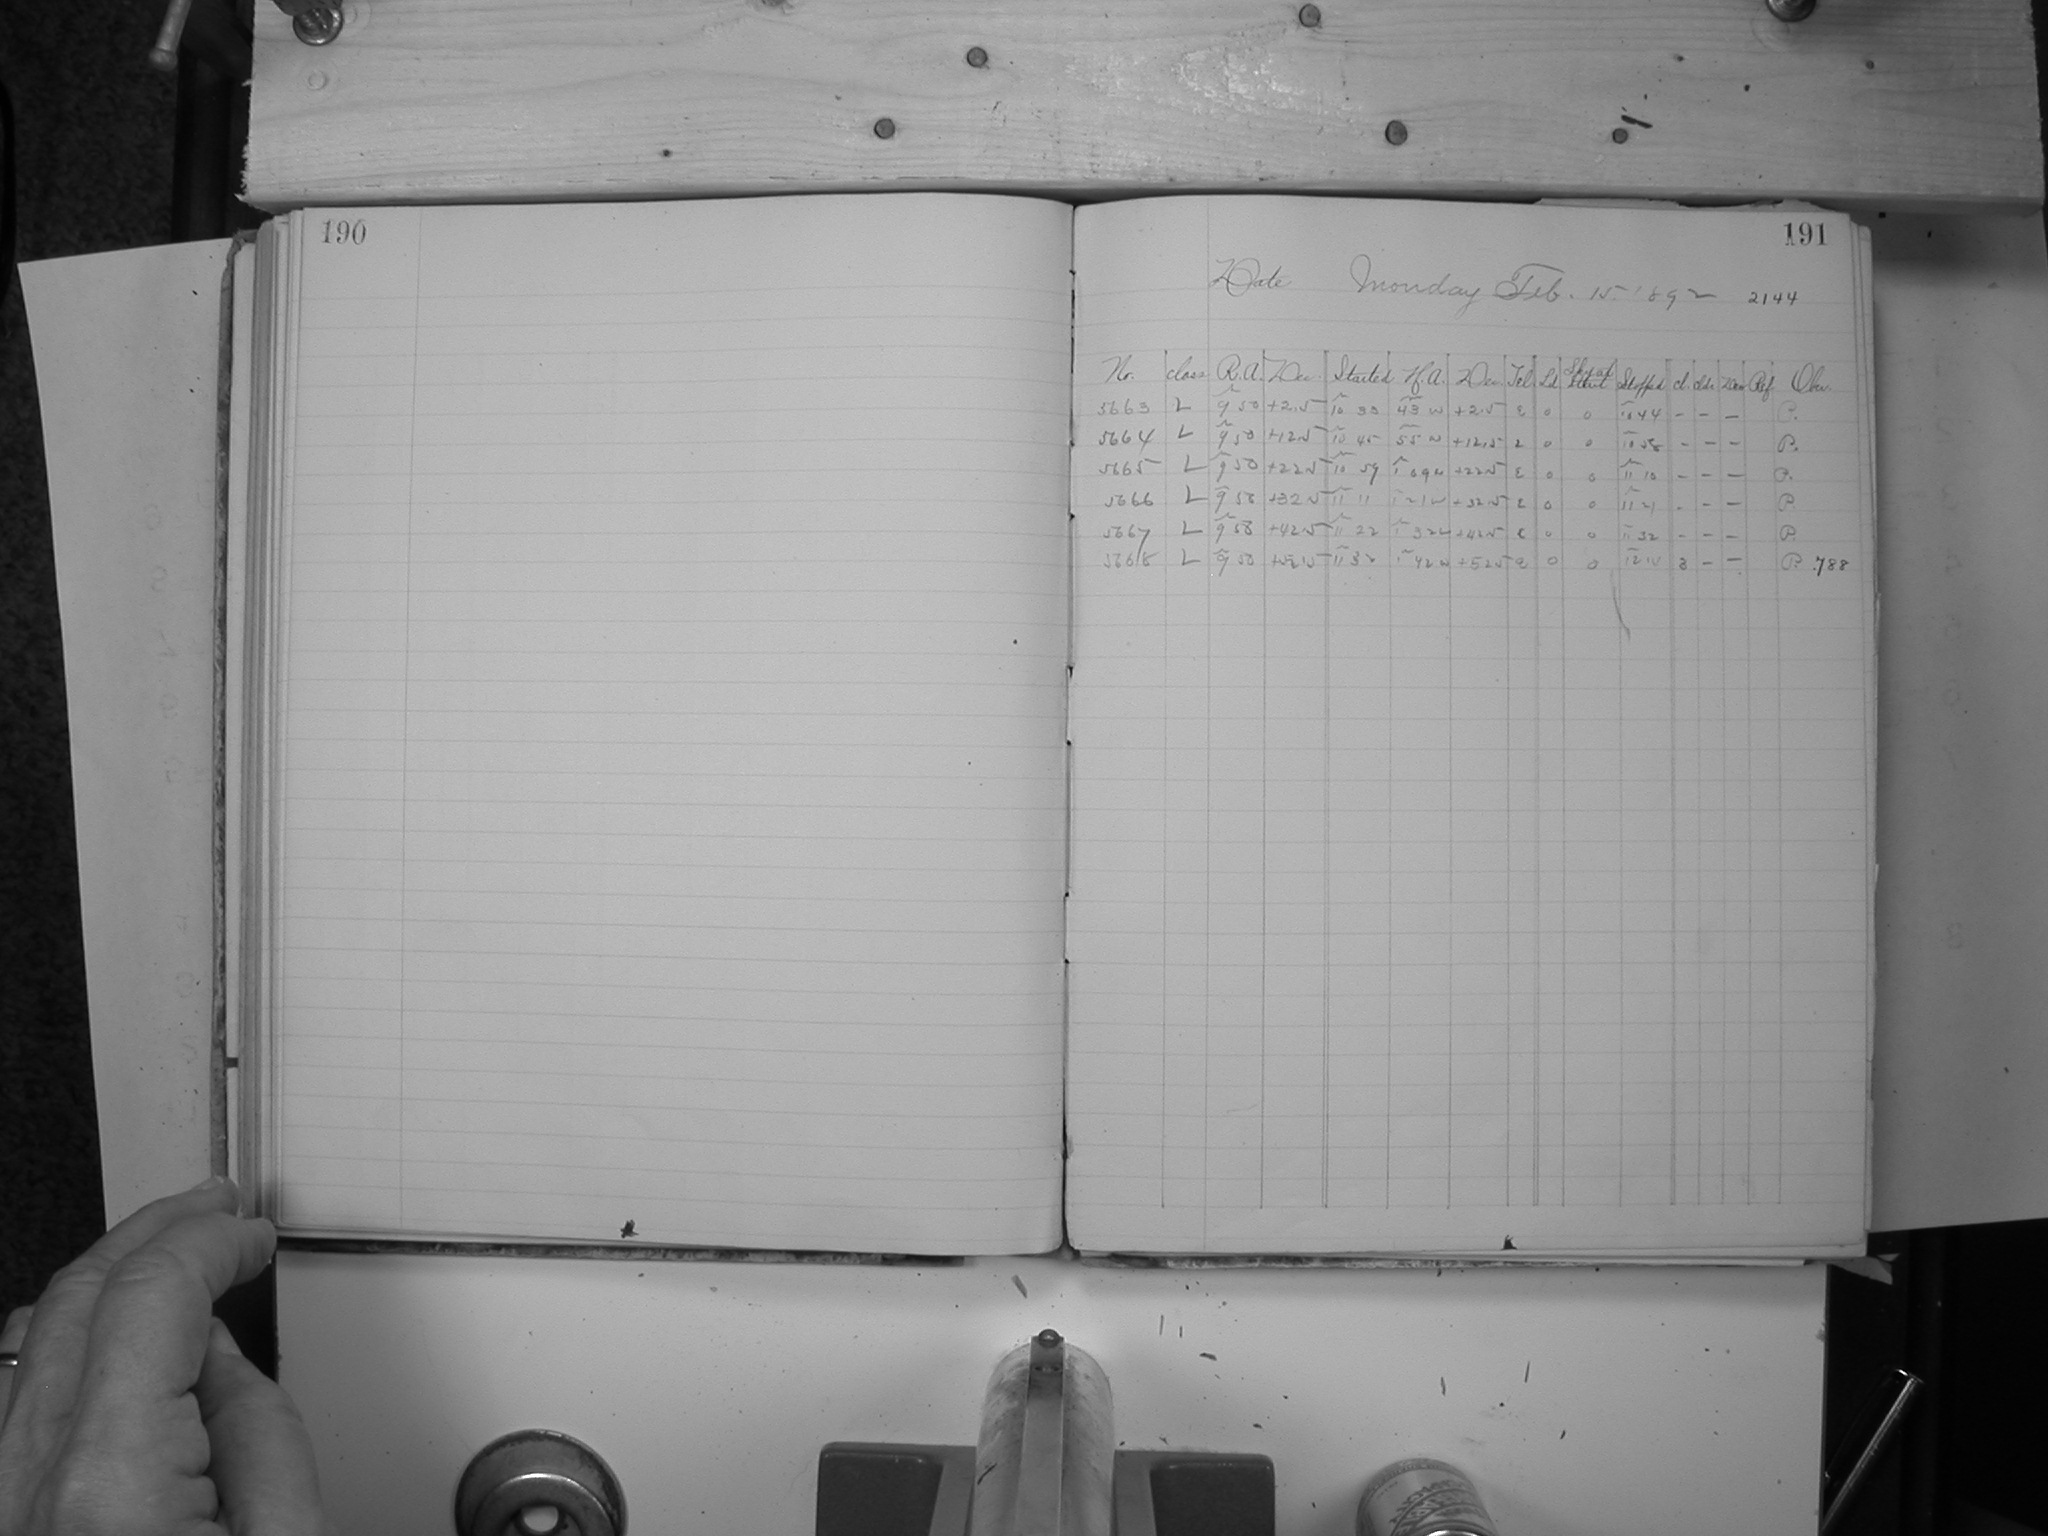 190
191
Date Monday Feb. 15. '892 2144
No. class R.A. Dec. Started H.A. Dec. Tel Ld Sky at Start Stopped cl. Ref Obs.
5663 L 9 50 +2.5 10 33 43 W +2.5 E 0 0 10 44 - - - P.
5664 L 9 50 +12.5 10 45 55 W +12.5 E 0 0 10 58 - - - P.
5665 L 9 50 +22.5 10 59 1 09 W +22.5 E 0 0 11 10 - - - P.
5666 L 9 50 +32.5 11 11 1 21 W +32.5 E 0 0 11 21 - - - P
5667 L 9 50 +42.5 11 22 1 32 W +42.5 E 0 0 11 32 - - - P.
5668 L 9 50 +52.5 11 32 1 42 W +52.5 E 0 0 3 - - P. 788